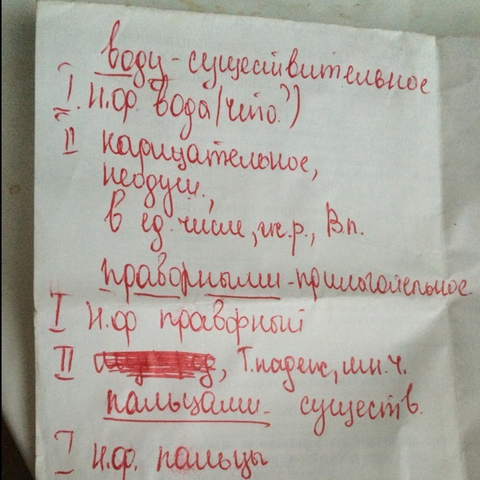 воду - существительное
I. н.ф. вода (что?)
II нарицательное,
неодуш.,
в ед. числе, ж.р., В.п.
проворными - прилагательное
I н.ф проворный
II , Т.падеж, мн.ч.
пальцами - существ.
I н.ф. пальцы